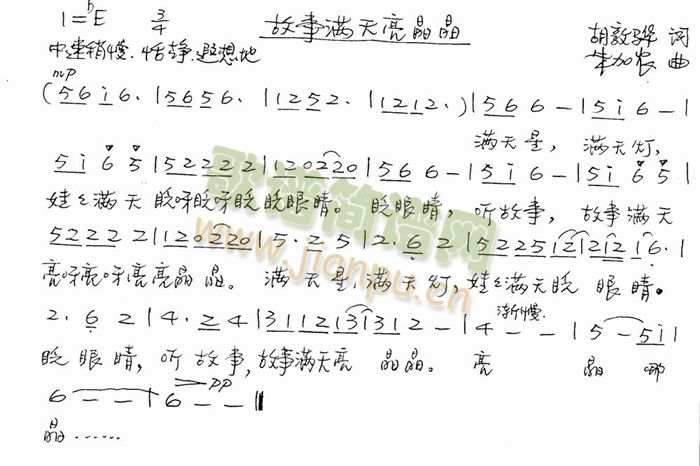 1=♭E 3/4 故事满天亮晶晶 胡敦骅 词
中速稍慢、恬静、遐想地 朱加农 曲
mp
(5 6 i 6· | 5 6 5 6· | 1 2 5 2· | 1 2 1 2· ) | 5 6 6 – | 5 i 6 – |
满天星, 满天灯,
5 i 6 5 | 5 2 2 2 2 | 1 2 0 2 2 0 | 5 6 6 – | 5 i 6 – | 5 i 6 5 |
娃娃满天 眨呀眨呀眨 眨眼睛。 眨眼睛, 听故事, 故事满天
5 2 2 2 2 | 1 2 0 2 2 0 | 5· 2 5 | 2· 6 2 | 5 2 2 5 1 2 | 2 1 2 1 6· |
亮呀亮呀亮 亮晶晶。 满天星, 满天灯, 娃娃满天眨 眼睛。
渐慢
2· 6 2 | 4· 2 4 | 3 1 1 2 1 3 | 3 1 3 1 2 – | 4 – – | 5 – 5 i |
眨眼睛, 听故事, 故事满天亮 晶晶。 亮 晶 哪
pp
6 – – | 6 – – ‖
晶……
歌谱简谱网
www.jianpu.cn